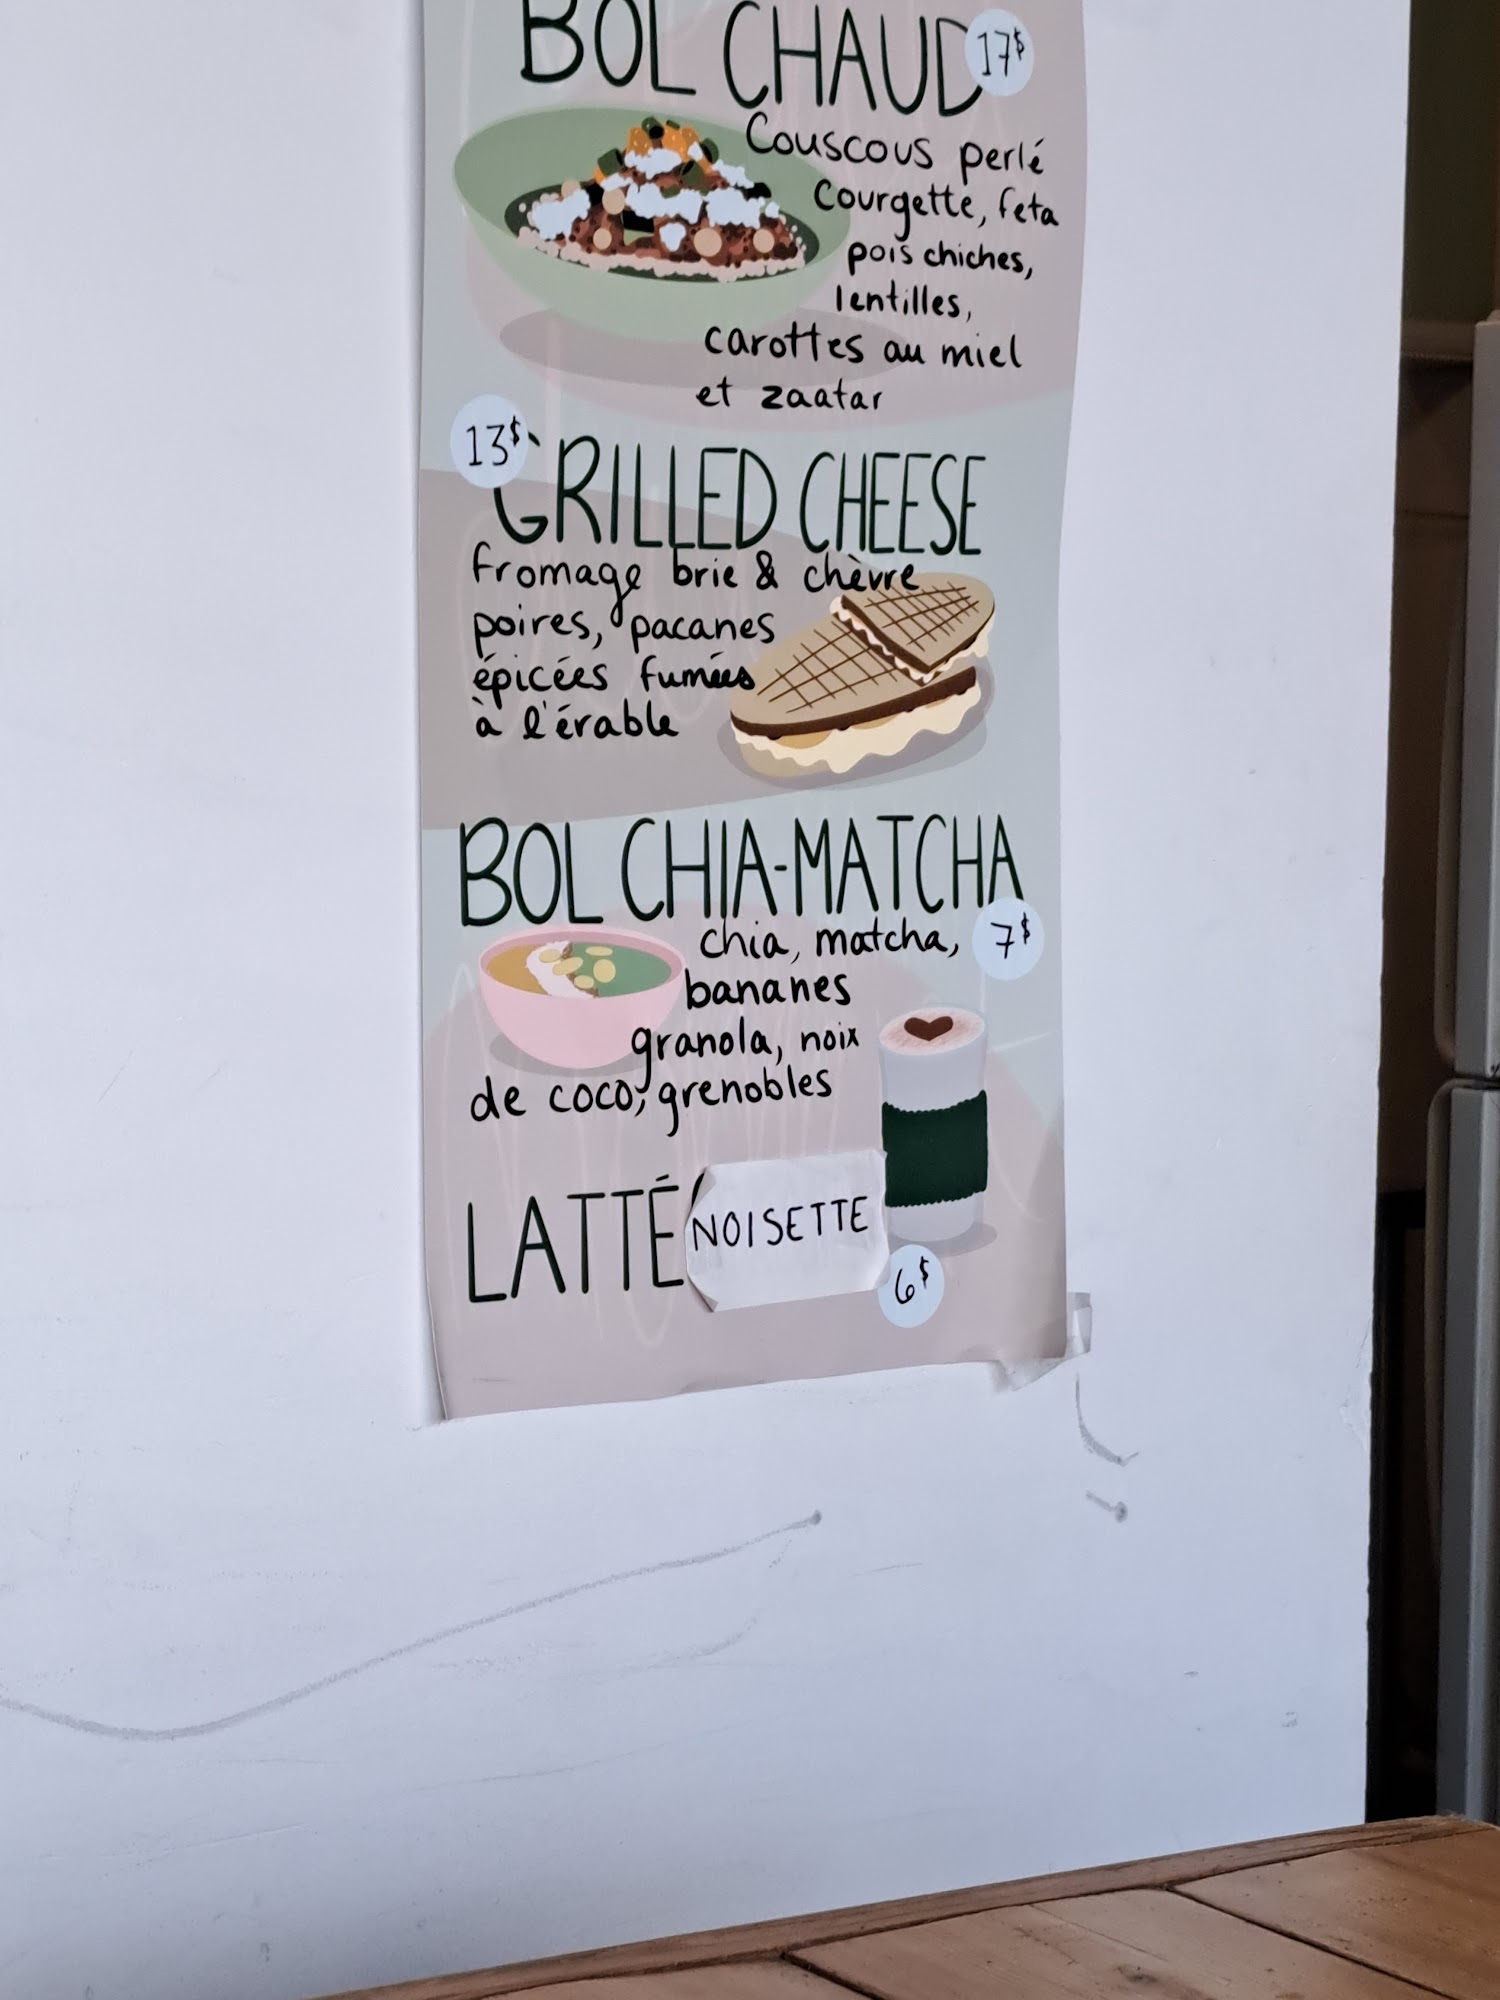 BOL CHAUD 17$
Couscous perlé
Courgette, feta
pois chiches,
lentilles,
carottes au miel
et zaatar
13$
GRILLED CHEESE
fromage brie & chèvre
poires, pacanes
épicées fumées
à l'érable
BOL CHIA-MATCHA
chia, matcha, 7$
bananes
granola, noix
de coco, grenobles
LATTÉ NOISETTE
6$